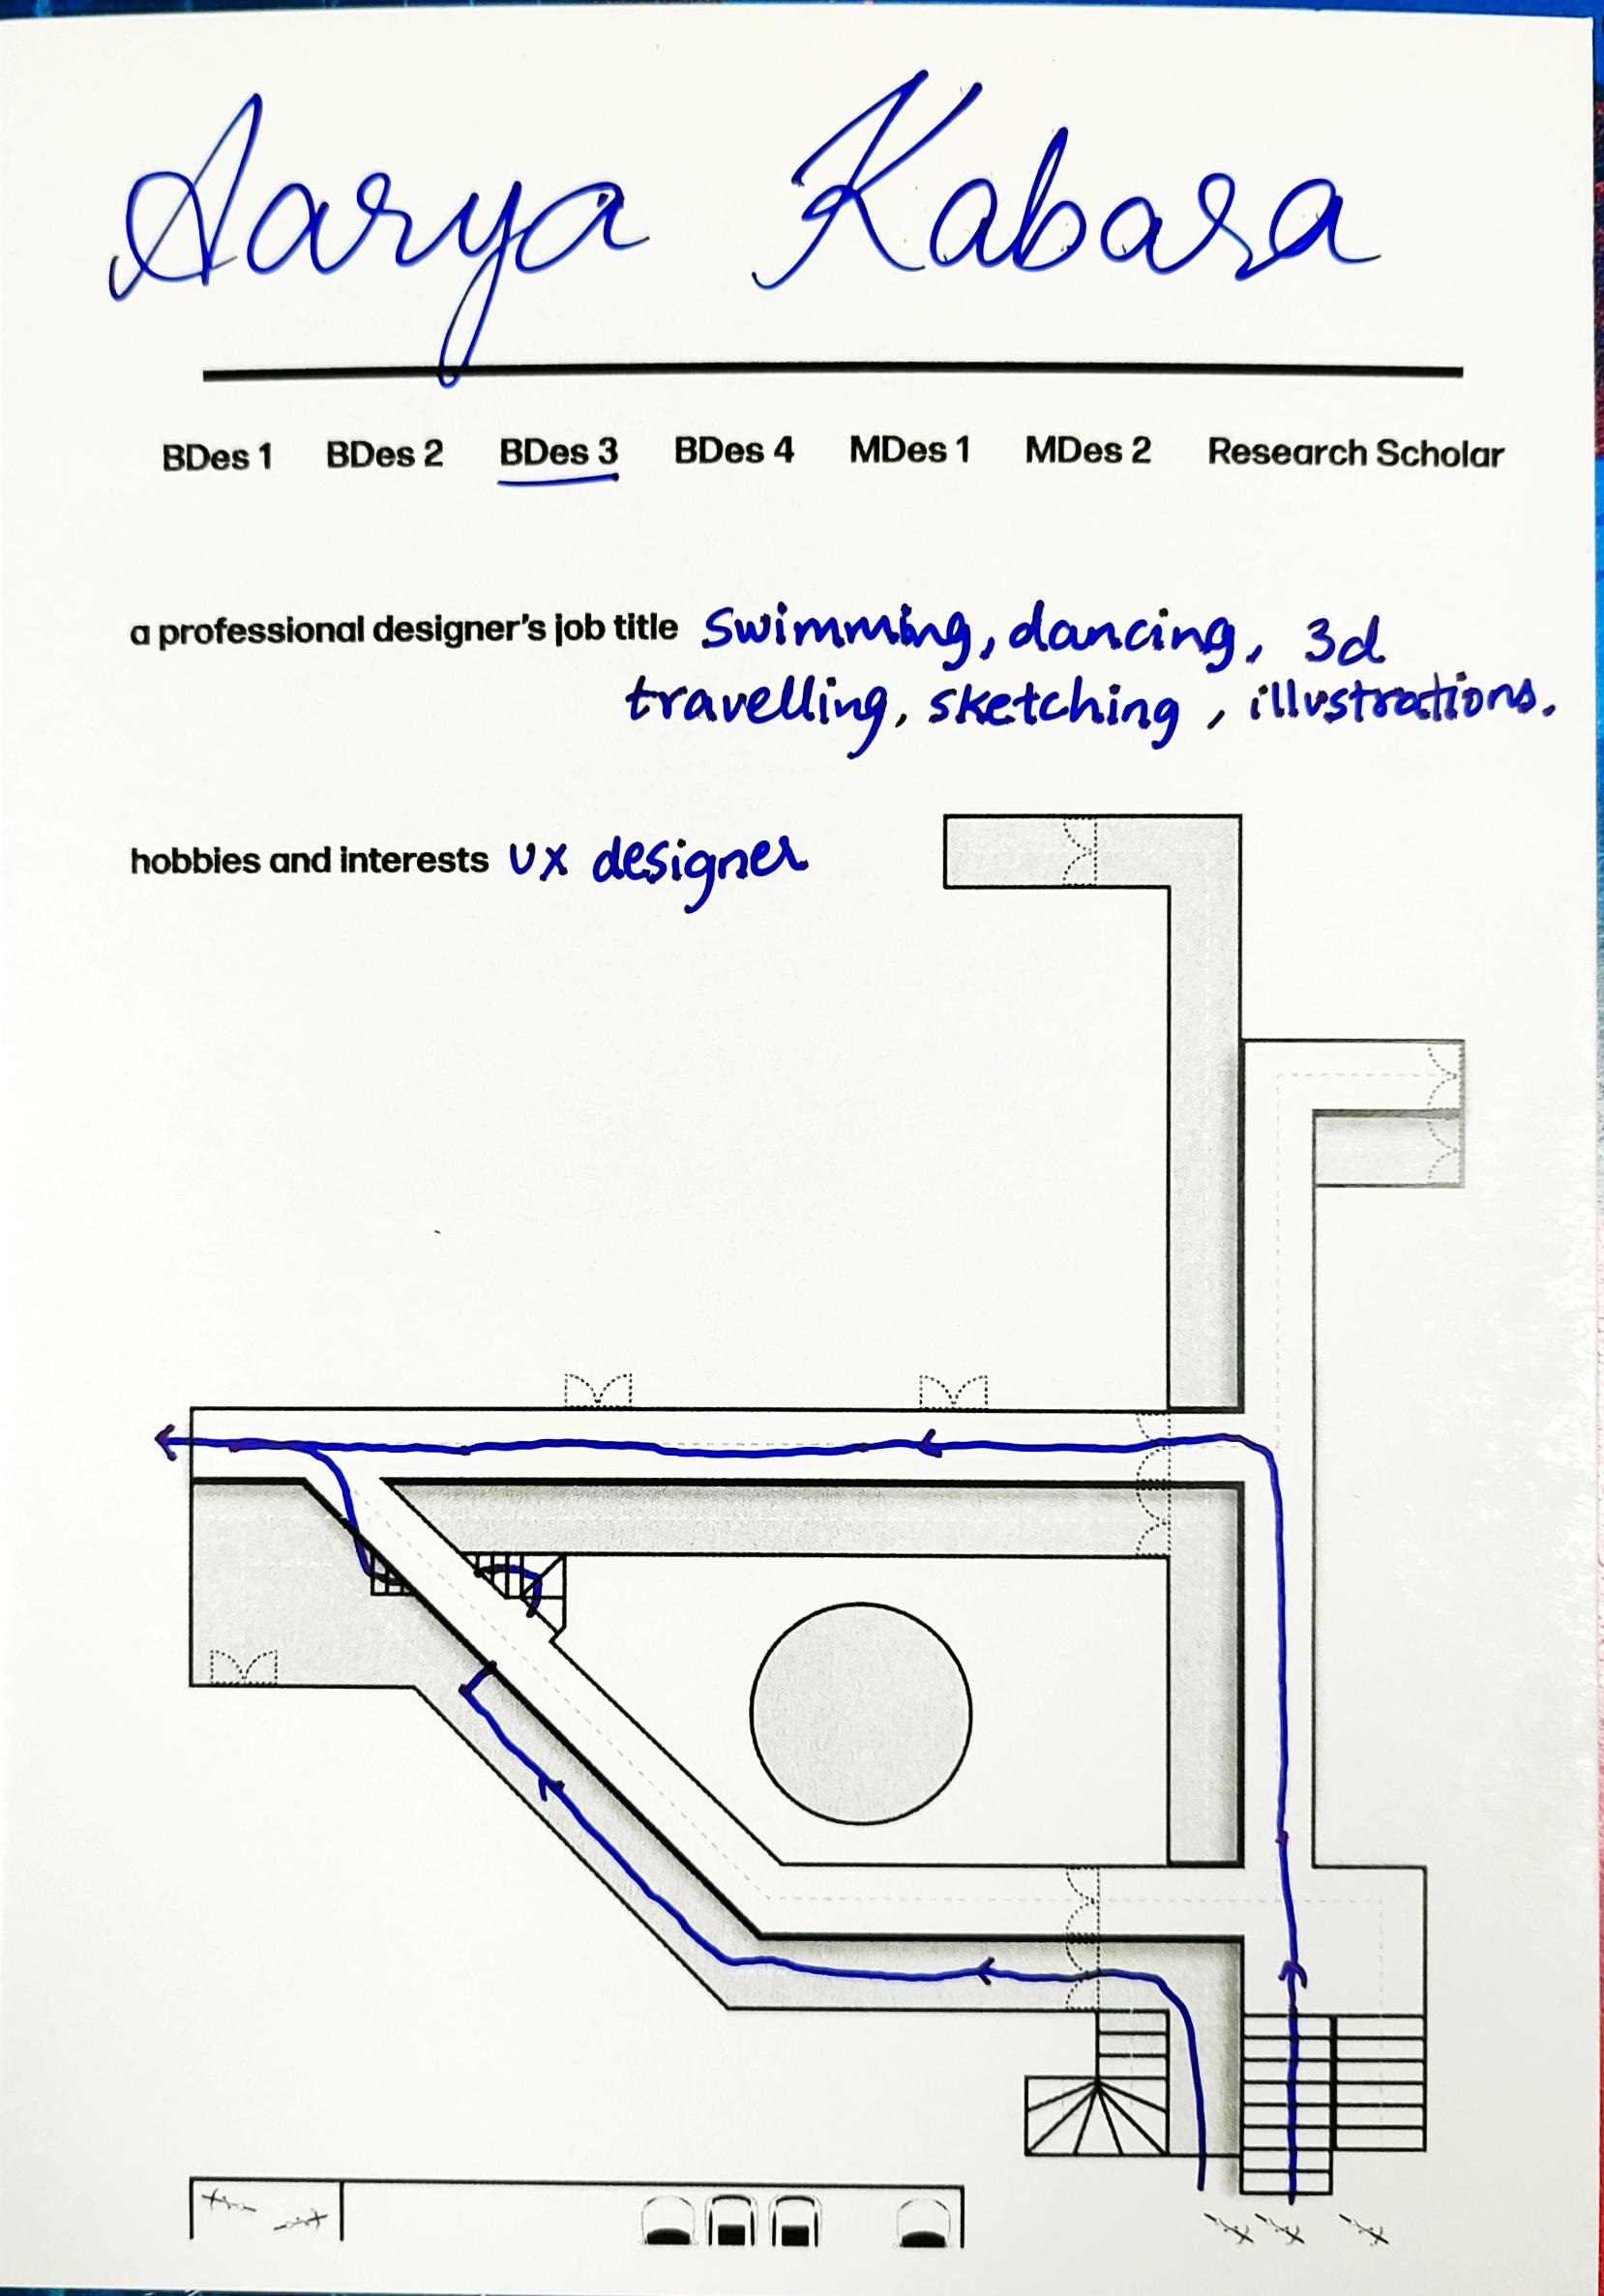 Aarya Kabara
BDes 1 BDes 2 BDes 3 BDes 4 MDes 1 MDes 2 Research Scholar
a professional designer's job title swimming, dancing, 3d
travelling, sketching, illustrations.
hobbies and interests UX designer